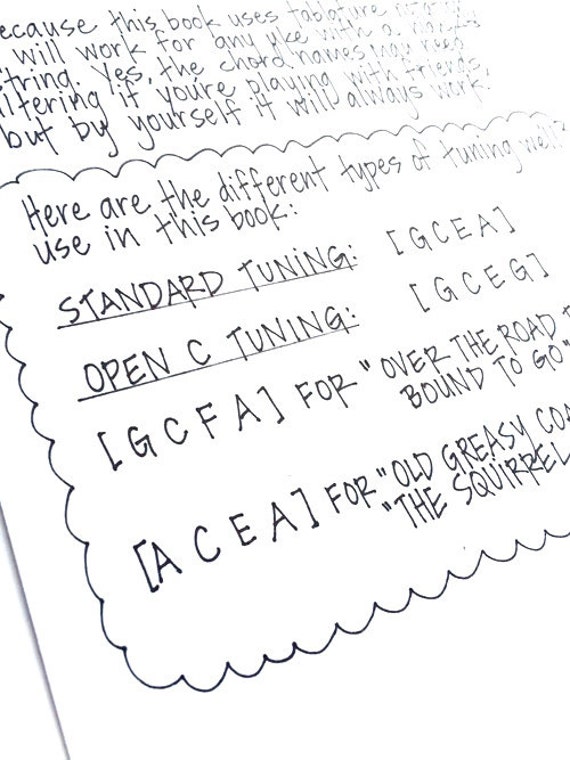 because this book uses tablature
will work for any uke with a
string. Yes, the chord names may need
altering if you're playing with friends,
but by yourself it will always work.
Here are the different types of tuning we'll
use in this book:
STANDARD TUNING: [GCEA]
OPEN C TUNING: [GCEG]
[GCFA] FOR "OVER THE ROAD
BOUND TO GO"
[ACEA] FOR "OLD GREASY
"THE SQUIRREL